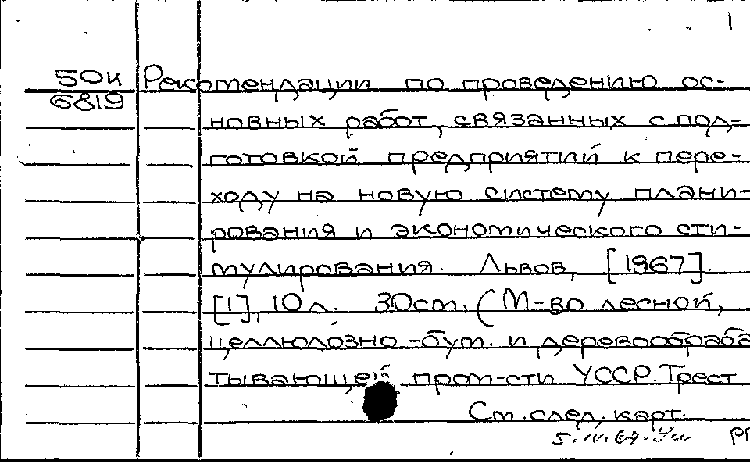 1
50к Рекомендации по проведению ос-
6819
новных работ, связанных с под-
готовкой предприятий к пере-
ходу на новую систему плани-
рования и экономического сти-
мулирования. Львов, [1967].
[1], 10 л. 30 см. (М-во лесной,
целлюлозно-бум. и деревообраба
тывающей пром-сти УССР. Трест
См. след. карт.